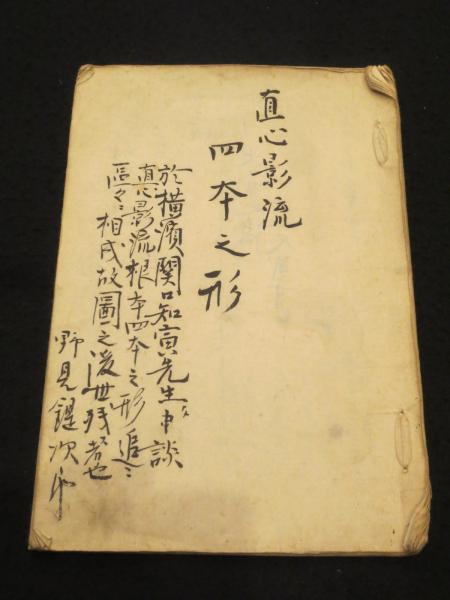 直心影流
四本之形
於横濱関口知寅先生申談
直心影流根本四本之形追々
區々相成故圖之後世残者也
野見鍉次